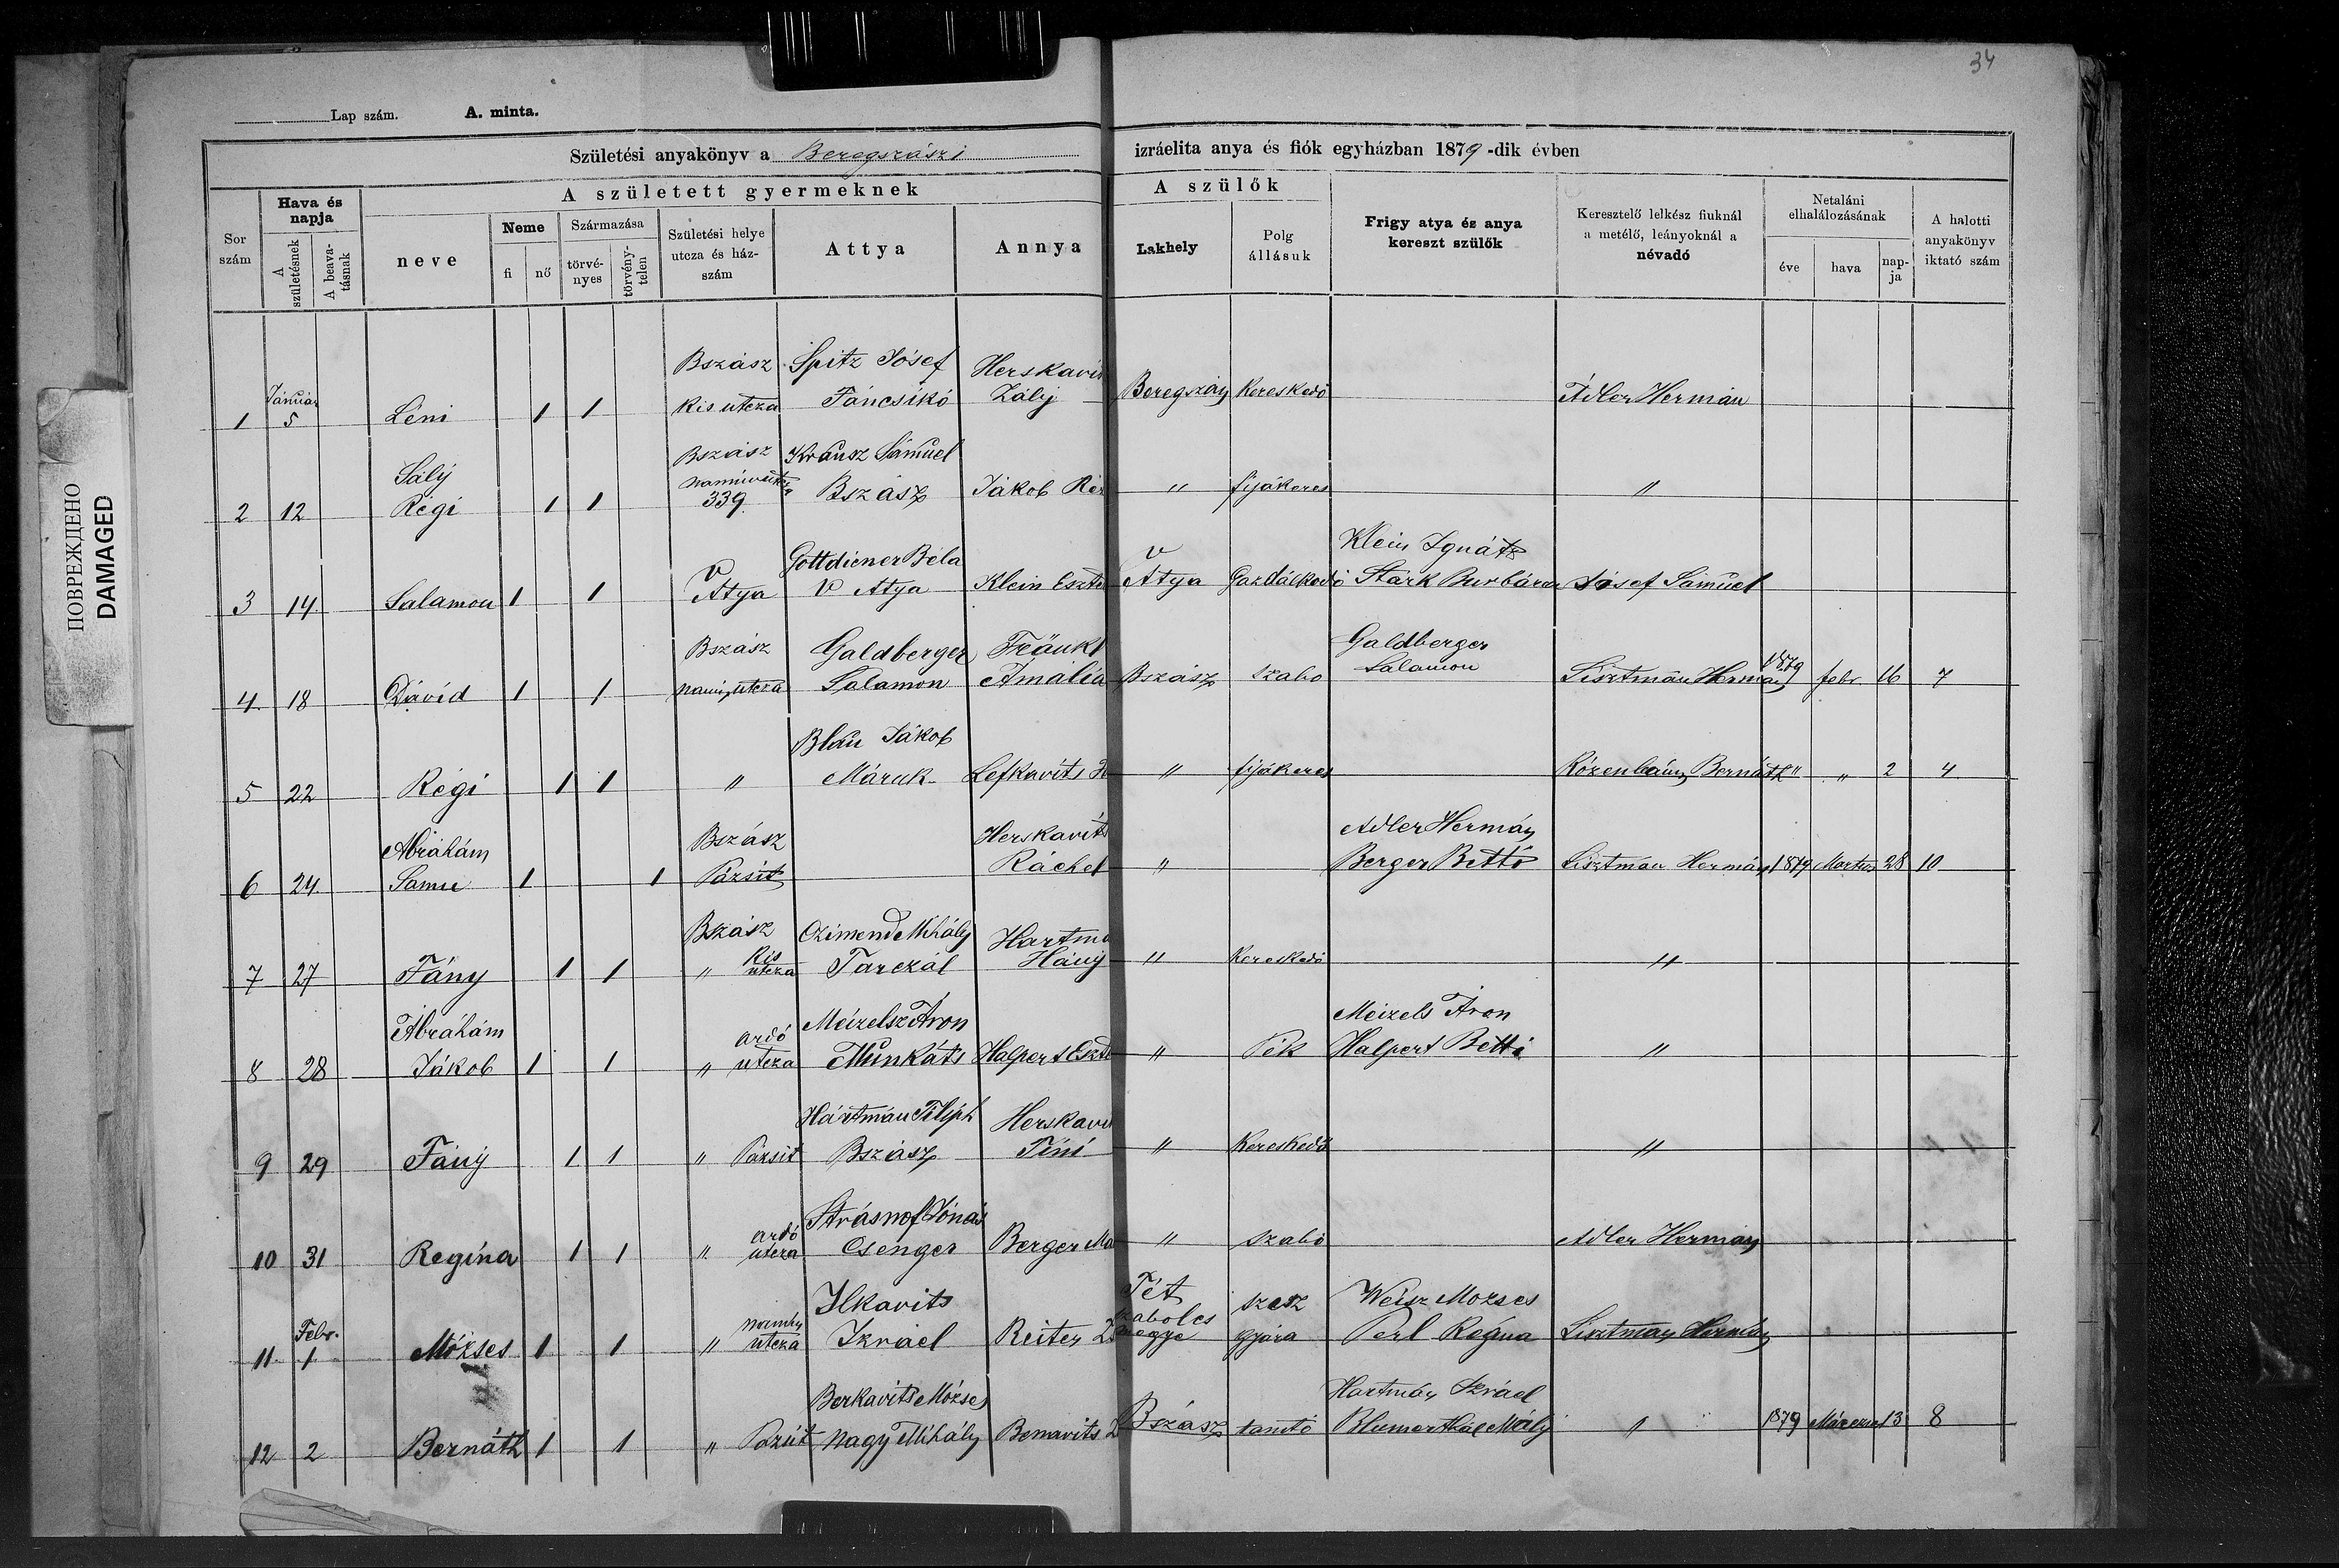 34
Lap szám. A. minta.
Születési anyakönyv a Beregszászi izráelita anya és fiók egyházban 1879-dik évben
Sor szám
Hava és napja
A születésnek
A beavatásnak
A született gyermeknek
neve
Neme
fi
nő
Származása
törvényes
törvénytelen
Születési helye utcza és házszám
Attya
Annya
A szülők
Lakhely
Polg állásuk
Frigy atya és anya kereszt szülők
Keresztelő lelkész fiuknál a metélő, leányoknál a névadó
Netaláni elhalálozásának
éve
hava
napja
A halotti anyakönyv iktató szám
1 Január 5 Léni 1 1 Bszász Kis utcza Spitz Jósef Fancsikó Zálij Beregszász Kereskedő Adler Hermán
2 12 Sálij Régi 1 1 Bszász 339 Krausz Sámuel Bszász Jákob " fijákeres "
3 14 Salamon 1 1 V Atya Gottdiener Béla V Atya Klein V Atya Gazdálkodó Klein Ignátz Stark Burbára Jósef Sámuel
4 18 Dávid 1 1 Bszász utcza Galdberger Salamon Fränkl Amália Bszász szabo Galdberger Salamon Lisztmán Hermán 1879 febr. 16 7
5 22 Régi 1 1 " Blau Jákob Máruk Lefkavits " fijákeres Rózenbaum Bernáth " " 2 4
6 24 Abrahám Samu 1 1 Bszász Pázsit Herskavits Ráchel " Adler Hermán Berger Betti Lisztmán Hermán 1879 28 10
7 27 Fány 1 1 Bszász " Kis utcza Czimend Mihály Tarczál Hánij " Kereskedő "
8 28 Abrahám Jákob 1 1 " ardó utcza Meizelsz Aron Munkáts Halpert " Pék Meizels Aron Halpert Betti "
9 29 Fánij 1 1 " Pázsit Hártmán Filiph Bszász Tini " Kereskedő "
10 31 Regina 1 1 " ardó utcza Strásnof Jónás Csenger Berger " szabó Adler Hermán
11 Febr. 1 Mózses 1 1 " utcza Ilkavits Izráel Reiter Tét szabolcs megye szesz gyára Weisz Mozses Perl Regina Lisztman Hermán
12 2 Bernáth 1 1 " Pázsit Berkavits Mózses Nagy Mihály Bszász tanitó Hartmán Izráel Blumenthal Málij " 1879 13 8
ПОВРЕЖДЕНО
DAMAGED